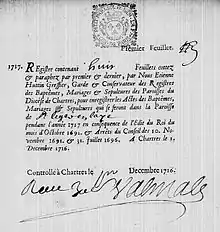 Premier Feuillet.
1717. REgistre contenant huit Feuillets cottez
& paraphez par premier & dernier, par Nous Etienne
Huttin Greffier, Garde & Conservateur des Registres
des Baptêmes, Mariages & Sepultures des Paroisses du
Diocése de Chartres, pour enregistrer les Actes des Baptêmes,
Mariages & Sepultures qui se feront dans la Paroisse
de
pendant l'année 1717 en consequence de l'Edit du Roi du
mois d'Octobre 1691. & Arrêts du Conseil des 20. No-
vembre 1691. & 31. Juillet 1696. A Chartres le 1.
Decembre 1716.
Controllé à Chartres le Decembre 1716.